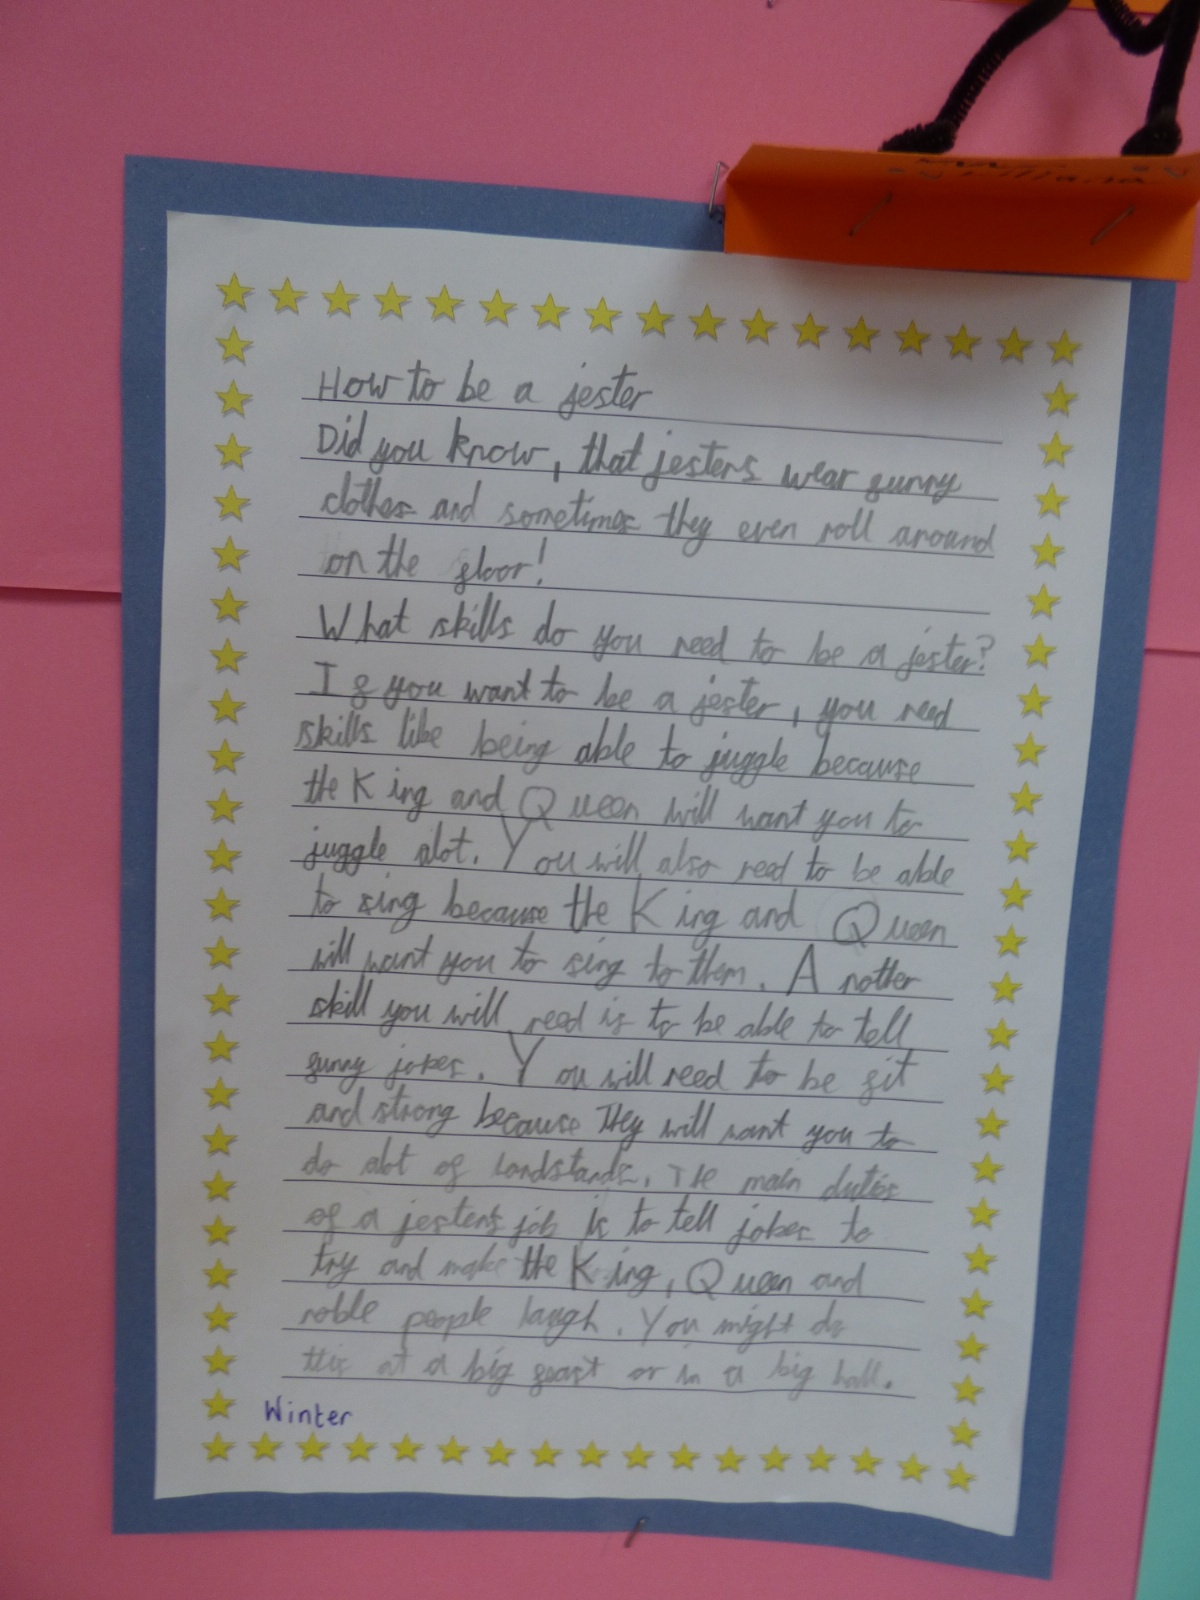 How to be a jester
Did you know, that jesters wear funny
clothes and sometimes they even roll around
on the floor!
What skills do you need to be a jester?
If you want to be a jester, you need
skills like being able to juggle because
the King and Queen will want you to
juggle alot. You will also need to be able
to sing because the King and Queen
will want you to sing to them. Another
skill you will need is to be able to tell
funny jokes. You will need to be fit
and strong because they will want you to
do alot of handstands. The main duties
of a jester's job is to tell jokes to
try and make the King, Queen and
noble people laugh. You might do
this at a big feast or in a big hall.
Winter